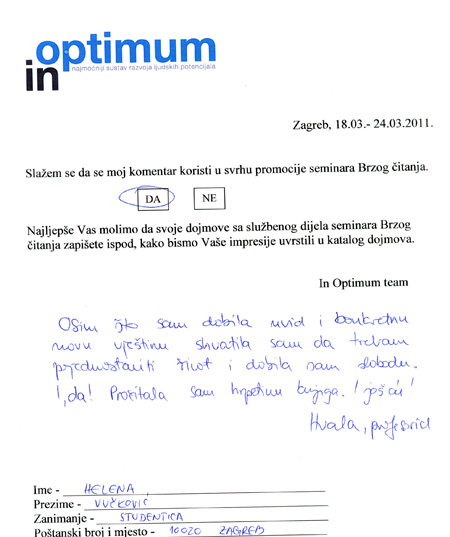 in optimum
najmoćniji sustav razvoja ljudskih potencijala
Zagreb, 18.03.- 24.03.2011.
Slažem se da se moj komentar koristi u svrhu promocije seminara Brzog čitanja.
DA NE
Najljepše Vas molimo da svoje dojmove sa službenog dijela seminara Brzog
čitanja zapišete ispod, kako bismo Vaše impresije uvrstili u katalog dojmova.
In Optimum team
Osim što sam dobila uvid i konkretnu
novu vještinu shvatila sam da trebam
pojednostaviti život i dobila sam slobodu.
!, da! Pročitala sam hrpetinu knjiga. I još ću!
Hvala,
Ime - HELENA
Prezime - VUČKOVIĆ
Zanimanje - STUDENTICA
Poštanski broj i mjesto - 10020 ZAGREB